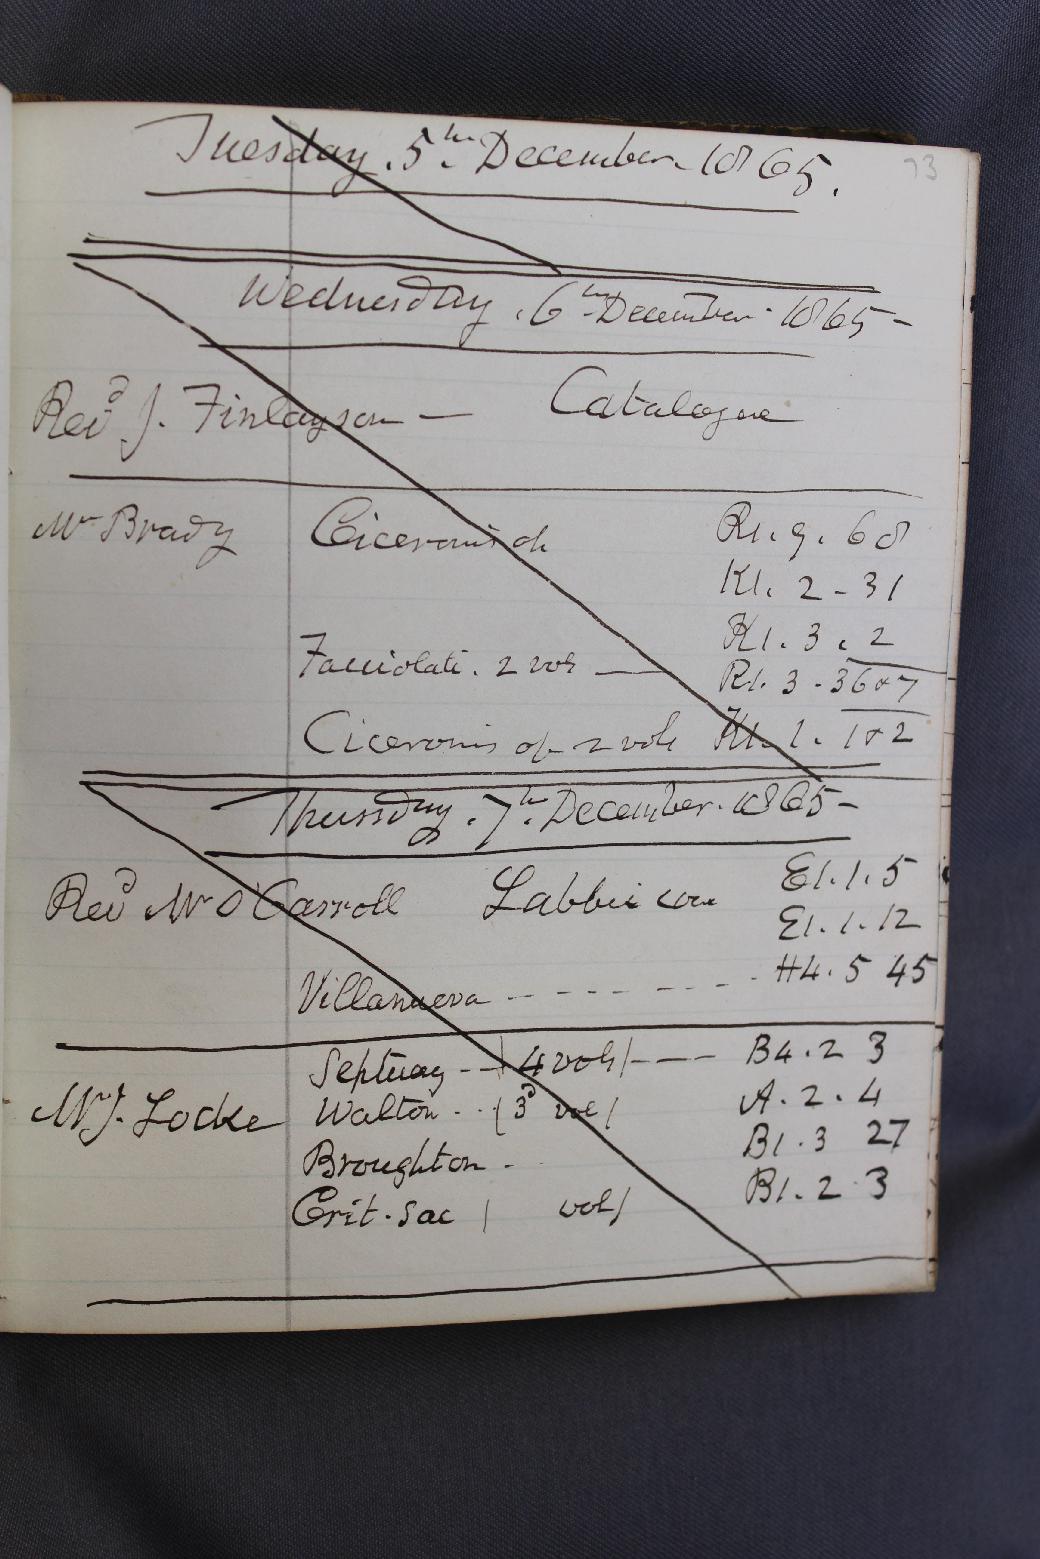 73
Tuesday. 5th. December. 1865.
Wednesday. 6th December. 1865-
Revd J. Finlayson — Catalogue
Mr Brady Ciceronis op. R1. 9. 68
K1. 2-31
K1. 3. 2
Facciolati. 2 vols — R1. 3-36&7
Ciceronis op. 2 vols K1. 1. 1&2
Thursday. 7th. December. 1865-
Revd Mr O'Carroll Labbei con E1. 1. 5
E1. 1. 12
Villanueva - - - - - - H4. 5 45
Septuag -- (4 vols) --- B4. 2 3
Mr J. Locke Walton - - (3d vol) A. 2. 4
Broughton - B1. 3 27
Crit. Sac ( vols) B1. 2 3